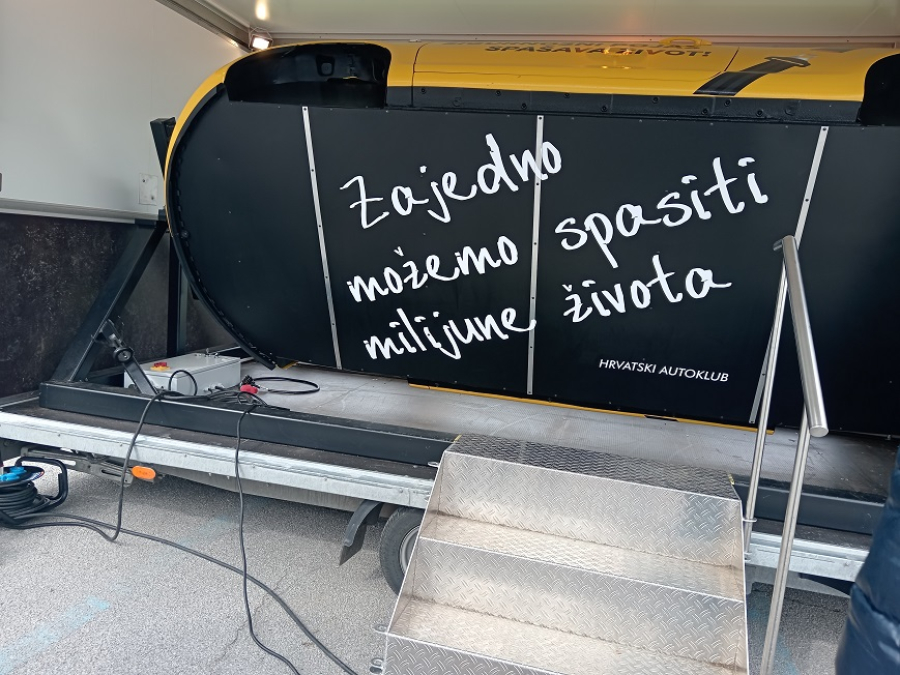 SPAŠAVA ŽIVOT!
Zajedno
možemo spasiti
milijune života
HRVATSKI AUTOKLUB